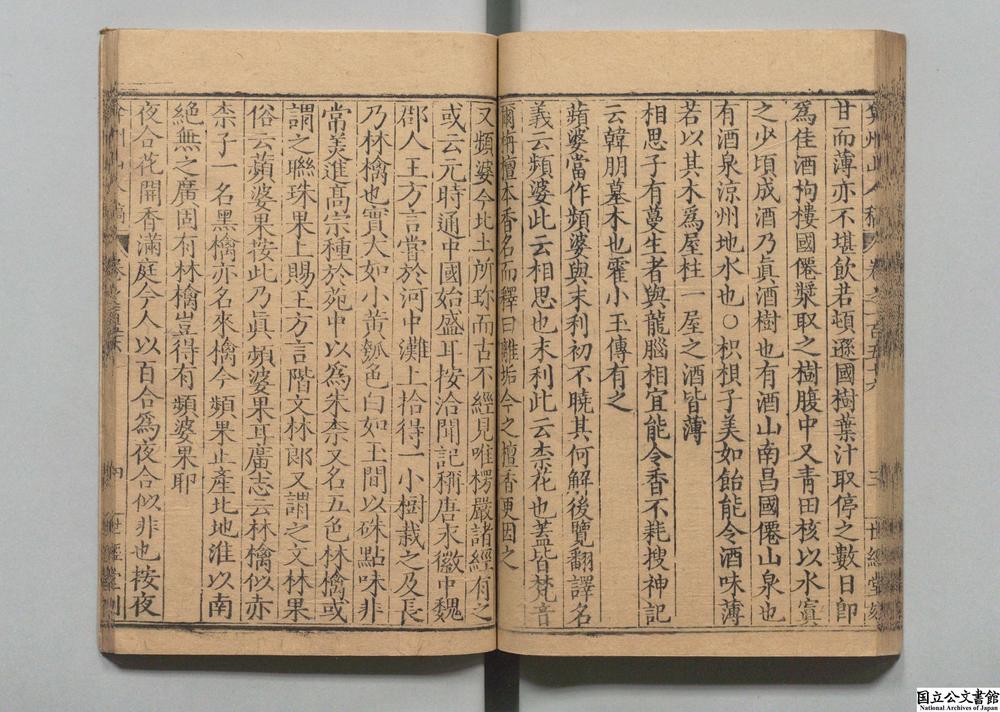 弇州山人稿 卷之一百五十六 三 世經堂刻
甘而薄亦不堪飲若頓遜國樹葉汁取停之數日卽
爲佳酒枸樓國僊漿取之樹腹中又靑田核以水寘
之少頃成酒乃眞酒樹也有酒山南昌國僊山泉也
有酒泉涼州地水也○枳椇子美如飴能令酒味薄
若以其木爲屋柱一屋之酒皆薄
相思子有蔓生者與龍腦相宜能令香不耗搜神記
云韓朋墓木也霍小玉傳有之
蘋婆當作頻婆與末利初不曉其何解後覽翻譯名
義云頻婆此云相思也末利此云柰花也蓋皆梵音
爾栴檀本香名而釋曰離垢今之檀香更因之
又頻婆今北土所珍而古不經見唯楞嚴諸經有之
或云元時通中國始盛耳按洽聞記稱唐永徽中魏
郡人王方言嘗於河中灘上拾得一小樹栽之及長
乃林檎也實大如小黃瓠色白如玉間以硃點味非
常美進高宗種於苑中以爲朱柰又名五色林檎或
謂之聯珠果上賜王方言階文林郎又謂之文林果
俗云蘋婆果按此乃眞頻婆果耳廣志云林檎似赤
柰子一名黑檎亦名來檎今頻果止產北地淮以南
絶無之廣固有林檎豈得有頻婆果耶
夜合花開香滿庭今人以百合爲夜合似非也按夜
四 世經堂刻
国立公文書館
National Archives of Japan